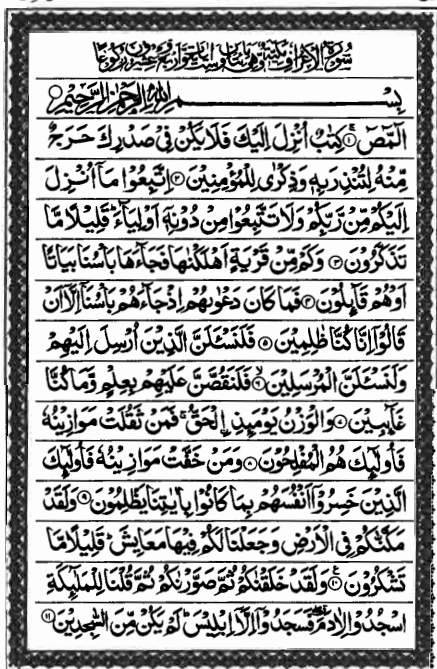 سُوْرَةُ الْاَعْرَافِ مَكِّيَّةٌ وَّهِيَ مِائَتَانِ وَسِتُّ اٰيَاتٍ وَّاَرْبَعٌ وَّعِشْرُوْنَ رُكُوْعًا
بِسْمِ اللّٰهِ الرَّحْمٰنِ الرَّحِيْمِ
الٓمّٓصٓ ۝١ كِتٰبٌ اُنْزِلَ اِلَيْكَ فَلَا يَكُنْ فِيْ صَدْرِكَ حَرَجٌ
مِّنْهُ لِتُنْذِرَ بِهٖ وَذِكْرٰى لِلْمُؤْمِنِيْنَ ۝٢ اِتَّبِعُوْا مَآ اُنْزِلَ
اِلَيْكُمْ مِّنْ رَّبِّكُمْ وَلَا تَتَّبِعُوْا مِنْ دُوْنِهٖٓ اَوْلِيَآءَ ؕ قَلِيْلًا مَّا
تَذَكَّرُوْنَ ۝٣ وَكَمْ مِّنْ قَرْيَةٍ اَهْلَكْنٰهَا فَجَآءَهَا بَاْسُنَا بَيَاتًا
اَوْ هُمْ قَآئِلُوْنَ ۝٤ فَمَا كَانَ دَعْوٰىهُمْ اِذْ جَآءَهُمْ بَاْسُنَآ اِلَّآ اَنْ
قَالُوْٓا اِنَّا كُنَّا ظٰلِمِيْنَ ۝٥ فَلَنَسْـَٔلَنَّ الَّذِيْنَ اُرْسِلَ اِلَيْهِمْ
وَلَنَسْـَٔلَنَّ الْمُرْسَلِيْنَ ۝٦ فَلَنَقُصَّنَّ عَلَيْهِمْ بِعِلْمٍ وَّمَا كُنَّا
غَآئِبِيْنَ ۝٧ وَالْوَزْنُ يَوْمَئِذِ ۨالْحَقُّ ۚ فَمَنْ ثَقُلَتْ مَوَازِيْنُهٗ
فَاُولٰٓئِكَ هُمُ الْمُفْلِحُوْنَ ۝٨ وَمَنْ خَفَّتْ مَوَازِيْنُهٗ فَاُولٰٓئِكَ
الَّذِيْنَ خَسِرُوْٓا اَنْفُسَهُمْ بِمَا كَانُوْا بِاٰيٰتِنَا يَظْلِمُوْنَ ۝٩ وَلَقَدْ
مَكَّنّٰكُمْ فِي الْاَرْضِ وَجَعَلْنَا لَكُمْ فِيْهَا مَعَايِشَ ؕ قَلِيْلًا مَّا
تَشْكُرُوْنَ ۝١٠ وَلَقَدْ خَلَقْنٰكُمْ ثُمَّ صَوَّرْنٰكُمْ ثُمَّ قُلْنَا لِلْمَلٰٓئِكَةِ
اسْجُدُوْا لِاٰدَمَ ۖ فَسَجَدُوْٓا اِلَّآ اِبْلِيْسَ ؕ لَمْ يَكُنْ مِّنَ السّٰجِدِيْنَ ۝١١